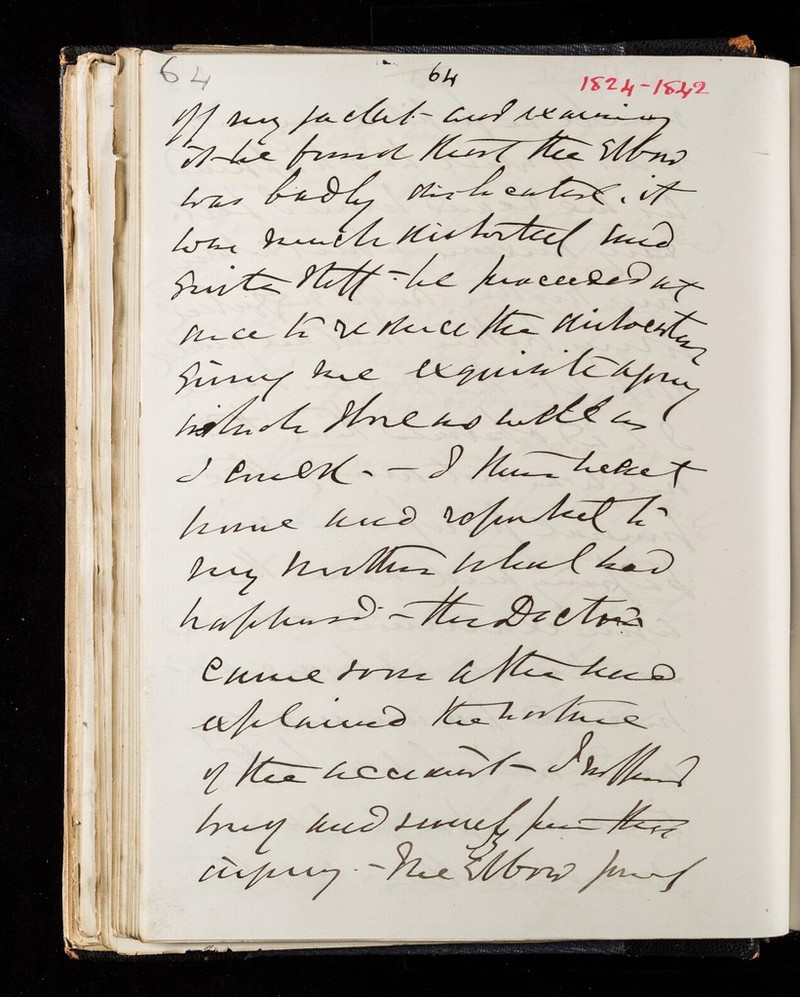 64 64 1824-1842
off my jacket - and examining
it he found that the Elbow
was badly dislocated. it
was much distorted and
quite stiff - he proceeded at
once to reduce the dislocation
giving me exquisite agony
which I bore as well as
I could. - I then walked
home and reported to
my mother what had
happened - the Doctor
came soon after and
explained the nature
of the accident - I suffered
long and severely from this
injury. - The Elbow joint